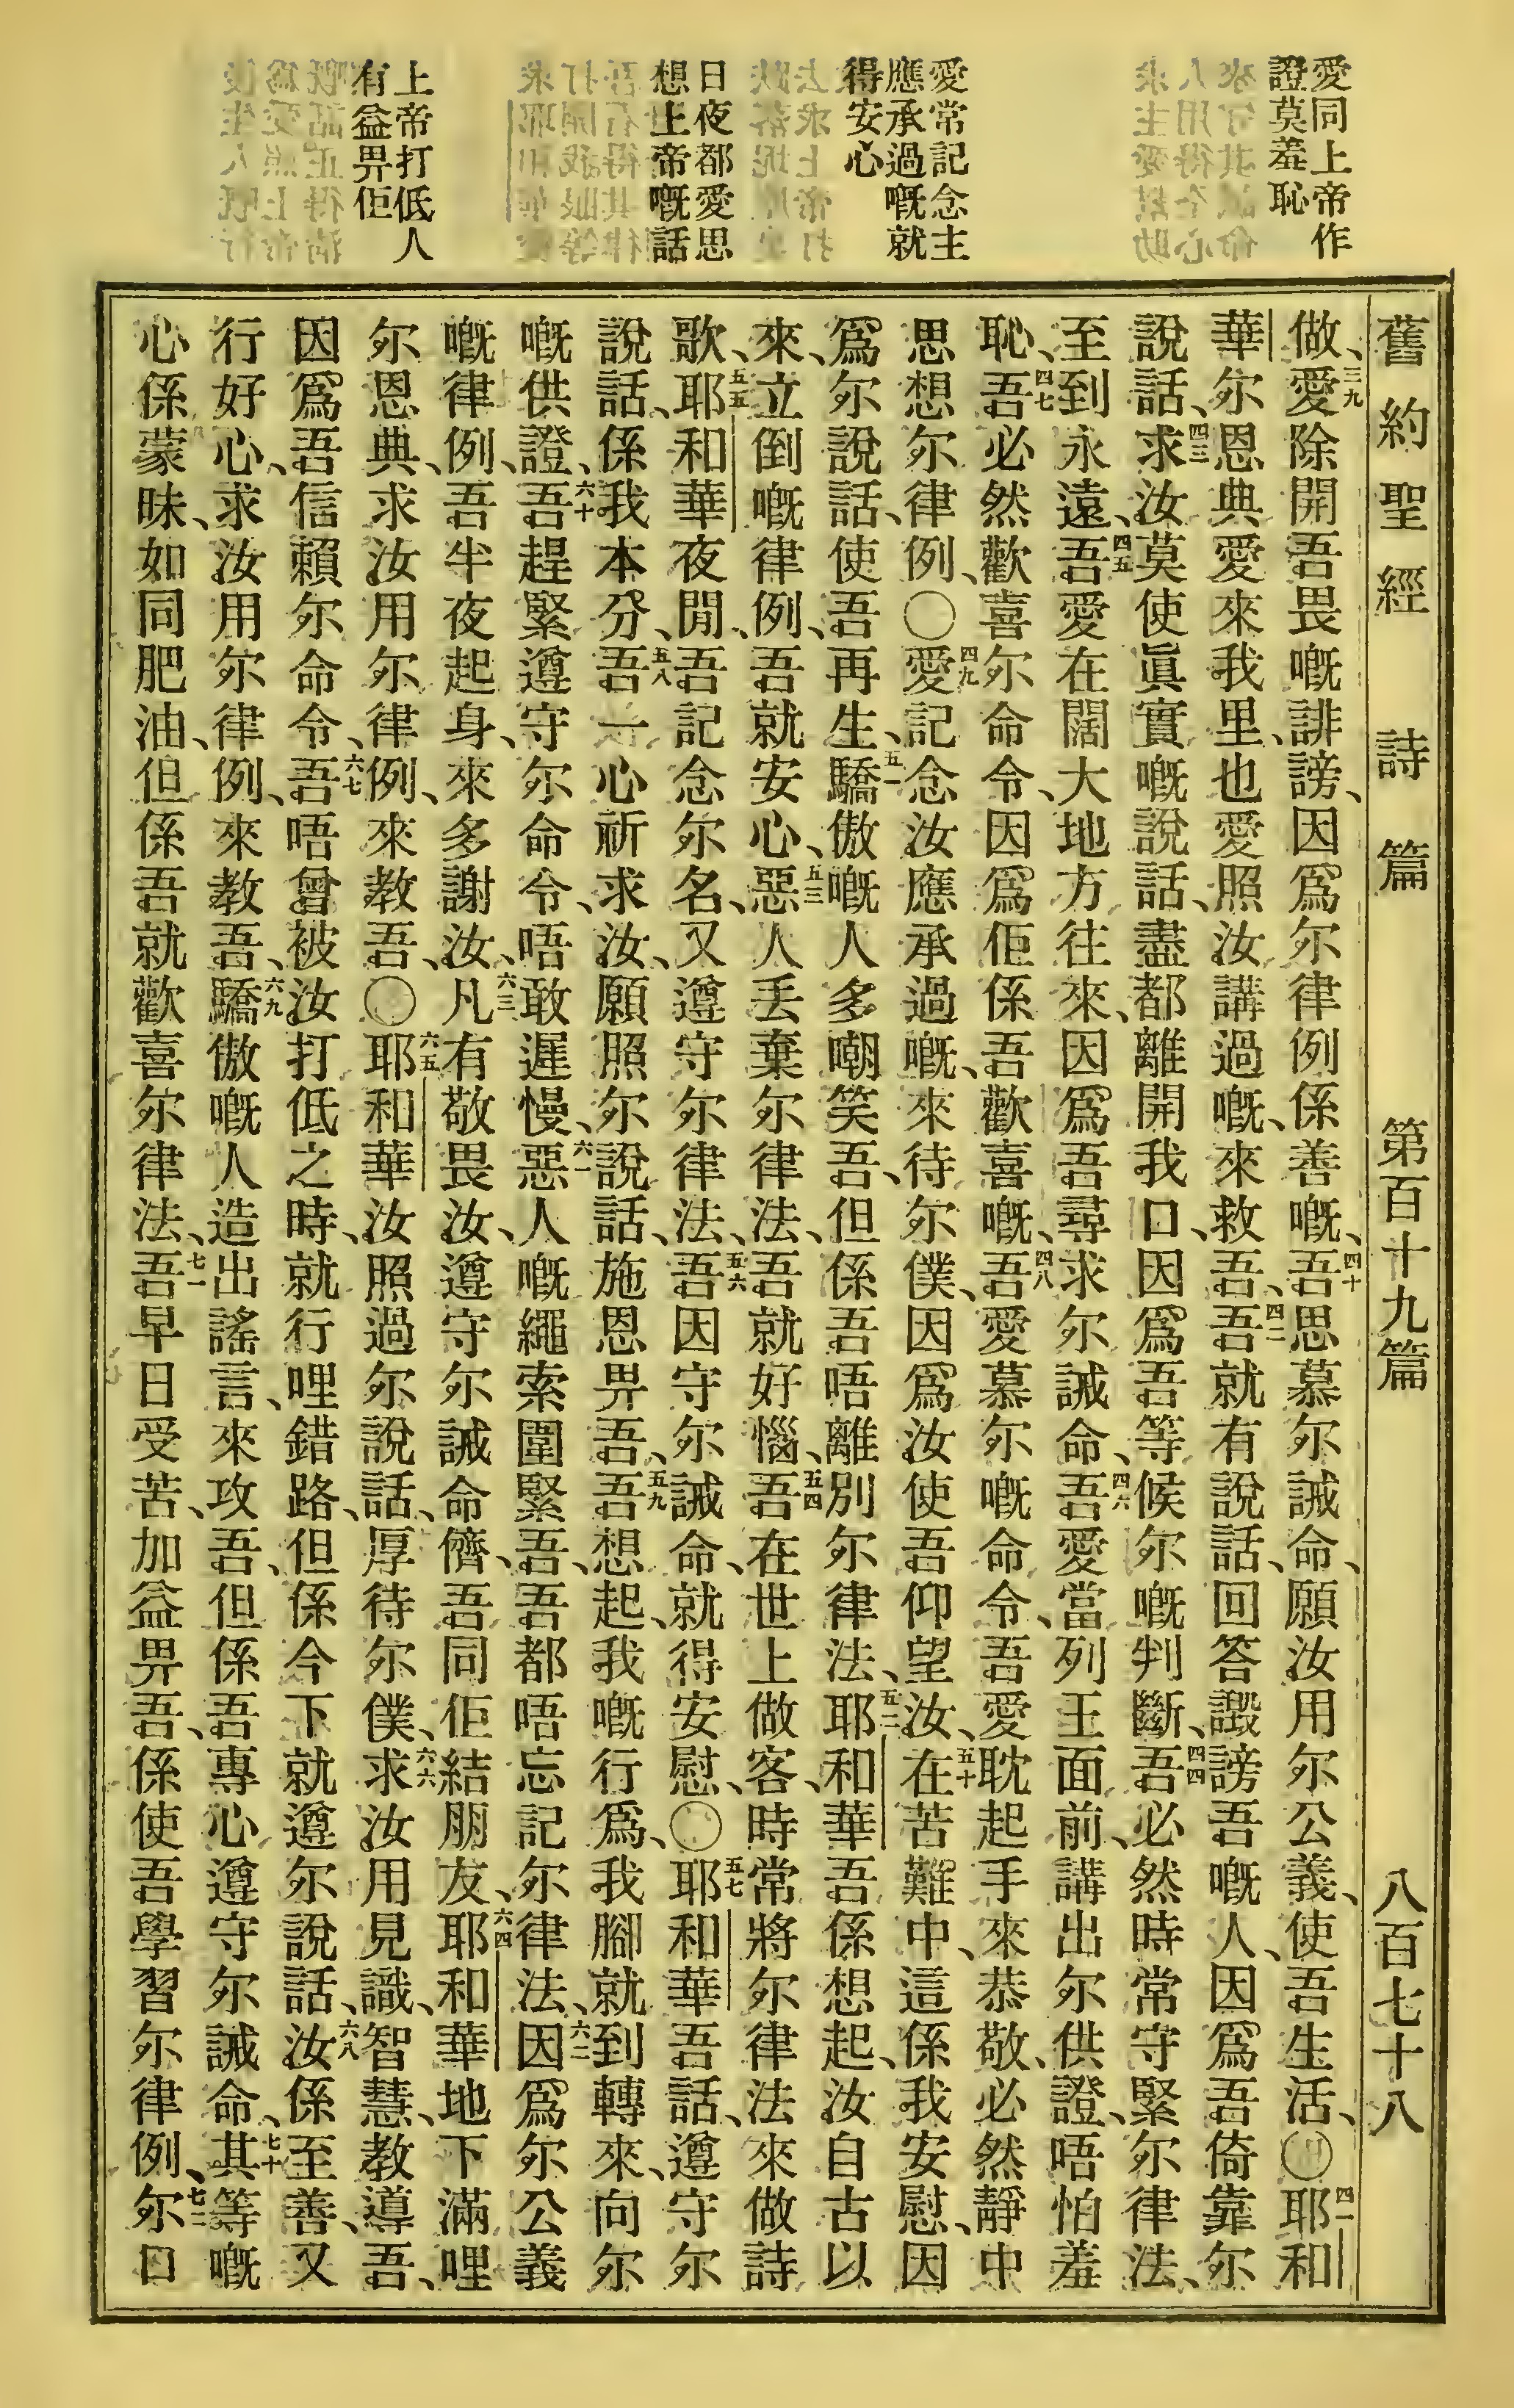 愛同上帝作
證莫羞恥
愛常記念主
應承過嘅就
得安心
日夜都愛思
想上帝嘅話
上帝打低人
有益畀佢
舊約聖經 詩篇 第百十九篇 八百七十八
做、三九愛除開吾畏嘅誹謗、因爲尔律例係善嘅、四十吾思慕尔誡命、願汝用尔公義、使吾生活、〇四一耶和
華尔恩典愛來我里、也愛照汝講過嘅、來救吾、四二吾就有說話、回答譭謗吾嘅人、因爲吾倚靠尔
說話、四三求汝莫使眞實嘅說話、盡都離開我口、因爲吾等候尔嘅判斷、四四吾必然時常守緊尔律法、
至到永遠、四五吾愛在闊大地方往來、因爲吾尋求尔誡命、四六吾愛當列王面前、講出尔供證、唔怕羞
恥、四七吾必然歡喜尔命令、因爲佢係吾歡喜嘅、四八吾愛慕尔嘅命令、吾愛耽起手來恭敬、必然靜中
思想尔律例、〇四九愛記念汝應承過嘅、來待尔僕、因爲汝使吾仰望汝、五十在苦難中、這係我安慰、因
爲尔說話、使吾再生、五一驕傲嘅人多嘲笑吾、但係吾唔離別尔律法、五二耶和華吾係想起、汝自古以
來、立倒嘅律例、吾就安心、五三惡人丟棄尔律法、吾就好惱、五四吾在世上做客、時常將尔律法來做詩
歌、五五耶和華夜間、吾記念尔名、又遵守尔律法、五六吾因守尔誡命、就得安慰、〇五七耶和華吾話、遵守尔
說話、係我本分、五八吾一心祈求汝、願照尔說話、施恩畀吾、五九吾想起、我嘅行爲、我腳就到轉來、向尔
嘅供證、六十吾趕緊遵守尔命令、唔敢遲慢、六一惡人嘅繩索圍緊吾、吾都唔忘記尔律法、六二因爲尔公義
嘅律例、吾半夜起身、來多謝汝、六三凡有敬畏汝、遵守尔誡命儕、吾同佢結朋友、六四耶和華地下滿哩
尔恩典、求汝用尔律例、來教吾、〇六五耶和華汝照過尔說話、厚待尔僕、六六求汝用見識、智慧、教導吾、
因爲吾信賴尔命令、六七吾唔曾被汝打低之時、就行哩錯路、但係今下就遵尔說話、六八汝係至善、又
行好心、求汝用尔律例、來教吾、六九驕傲嘅人造出謠言、來攻吾、但係吾專心遵守尔誡命、七十其等嘅
心係蒙昧、如同肥油、但係吾就歡喜尔律法、七一吾早日受苦、加益畀吾、係使吾學習尔律例、七二尔口